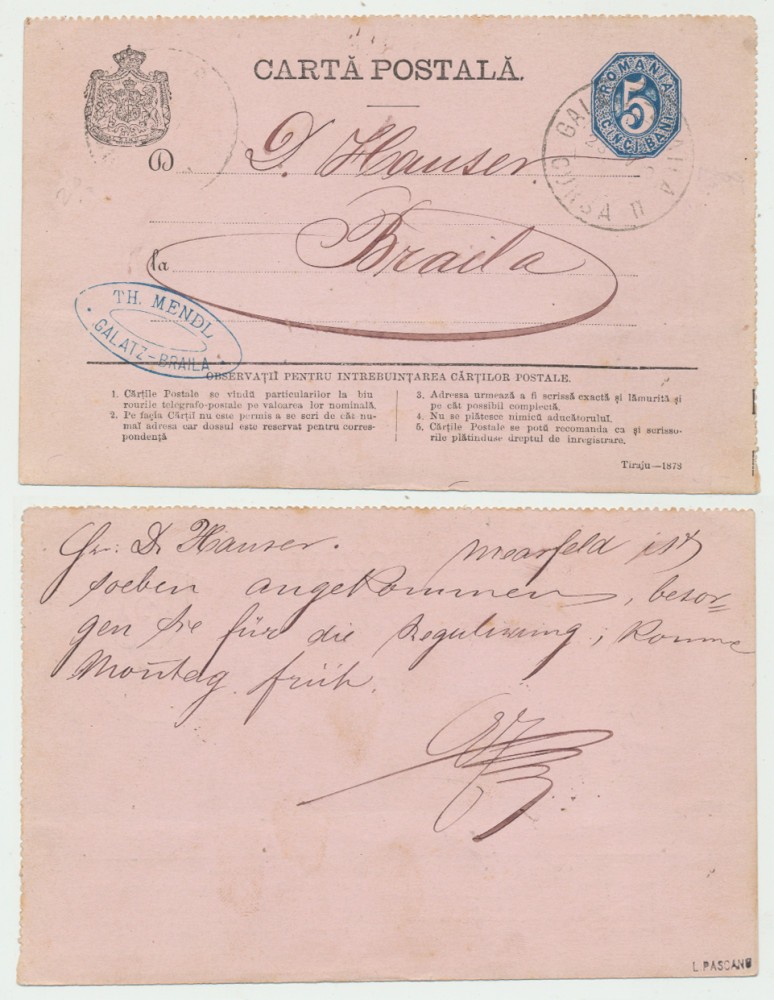 CARTĂ POSTALĂ.
ROMANIA
5
CINCI BANI
GALAȚI
CURSA II
D D. Hauser.
la Braila
TH. MENDL
GALATZ-BRAILA
OBSERVAȚII PENTRU INTREBUINȚAREA CĂRȚILOR POSTALE.
1. Cărțile Postale se vîndŭ particularilor la biu
rourile telegrafo-postale pe valoarea lor nominală.
2. Pe fația Cărțiĭ nu este permis a se scri de cât nu-
maĭ adresa ear dossul este reservat pentru cores-
pondență
3. Adressa urmează a fi scrissă exactă și lămurită și
pe cât possibil complectă.
4. Nu se plătesce nimicŭ aducătoruluĭ.
5. Cărțile Postale se potŭ recomanda ca și scrisso-
rile plătinduse dreptul de înregistrare.
Tiraju—1878
Hr: D. Hauser.
ist
soeben angekommen, besor=
gen Sie für die Regulirung, komme
Montag früh.
L. PASCANU